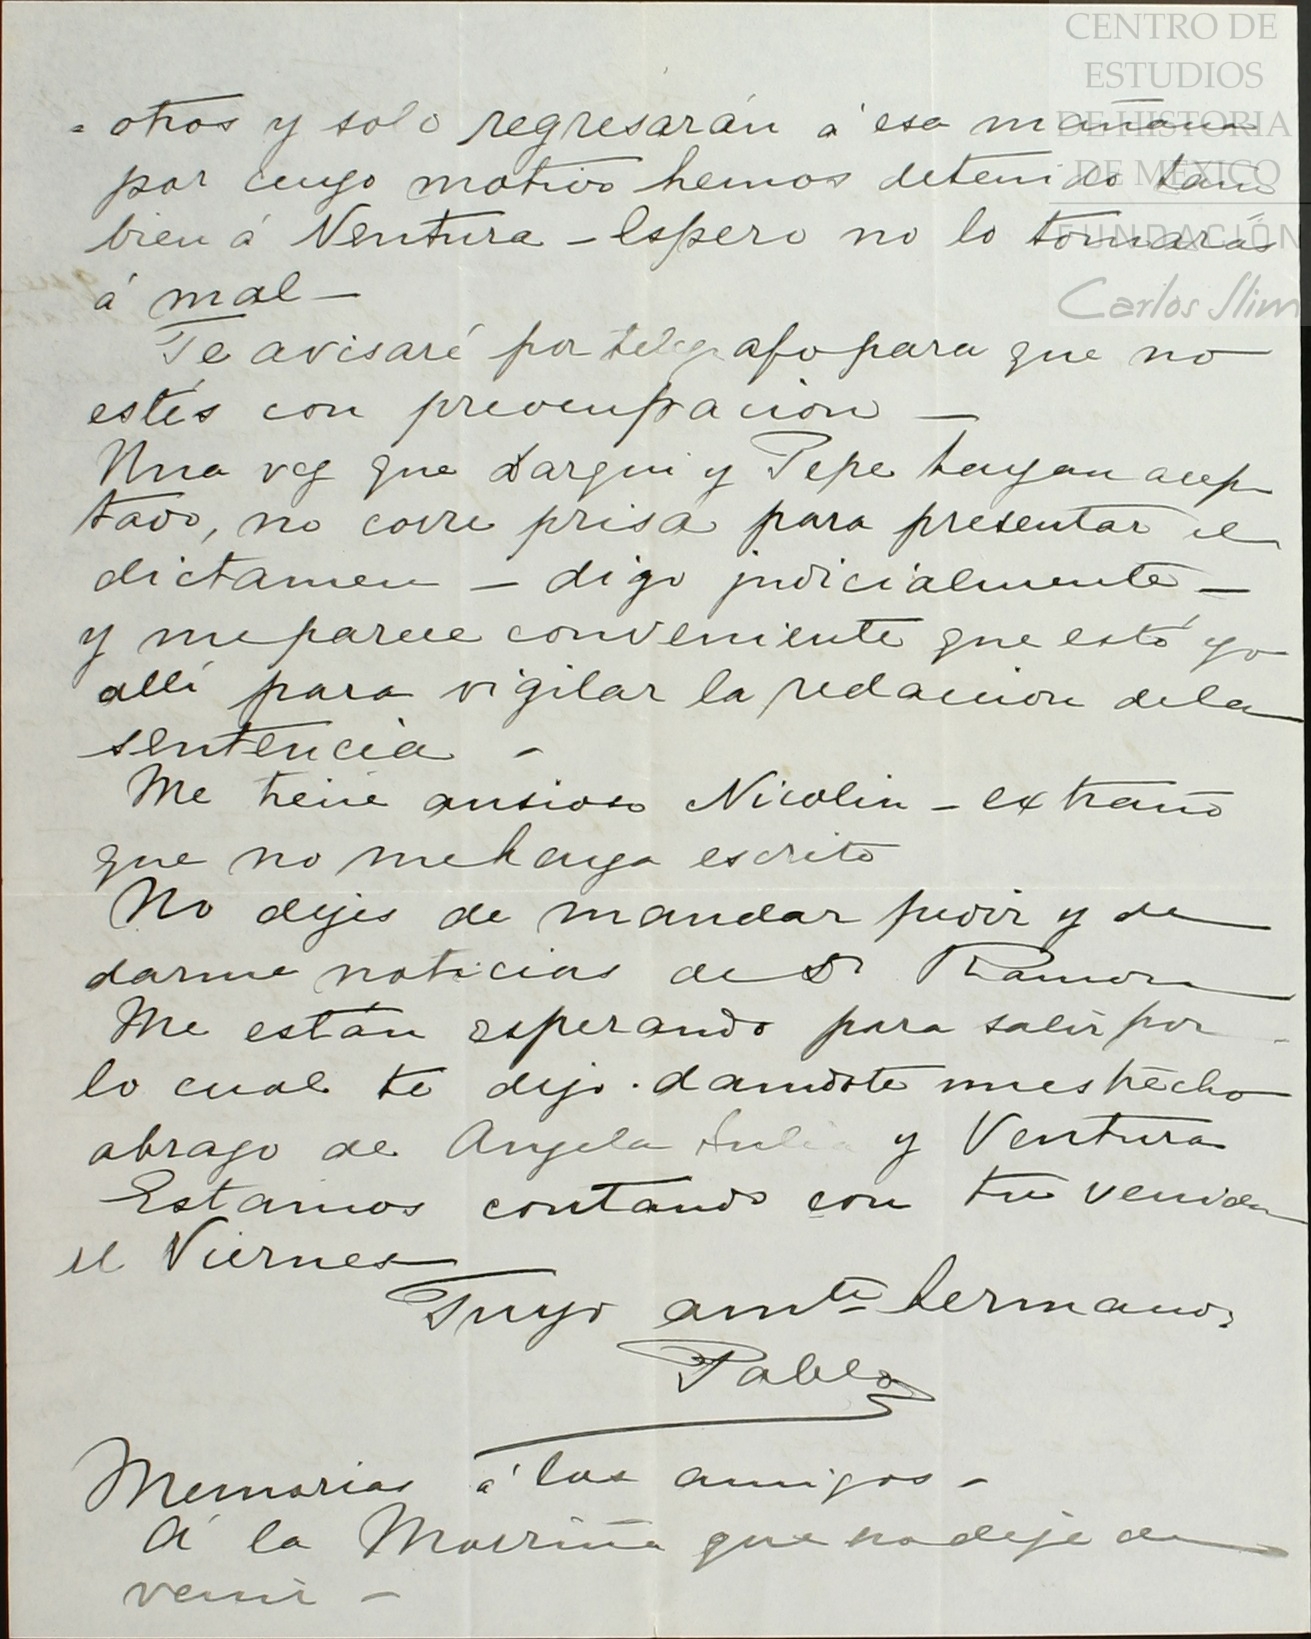 CENTRO DE
ESTUDIOS
DE HISTORIA
DE MÉXICO
FUNDACIÓN
Carlos Slim
= otros y solo regresarán á esa mañana
por cuyo motivo hemos detenido tam
bien á Ventura - Espero no lo tomarás
á mal -
Te avisaré por telegrafo para que no
estés con preocupacion -
Una vez que y Pepe hayan acep
tado, no corre prisa para presentar el
dictamen - digo judicialmente -
y me parece conveniente que esté yo
allí para vigilar la redaccion de la
sentencia -
Me tiene ansioso Nicolin - extraño
que no me haya escrito
No dejes de mandar pedir y de
darme noticias de Dn Ramon
Me están esperando para salir por
lo cual te dejo. dandote un estrecho
abrazo de Angela Julia y Ventura
Estamos contando con tu venida
el Viernes
Tuyo amte hermano,
Pablo
Memorias á los amigos -
A la que no deje de
venir -